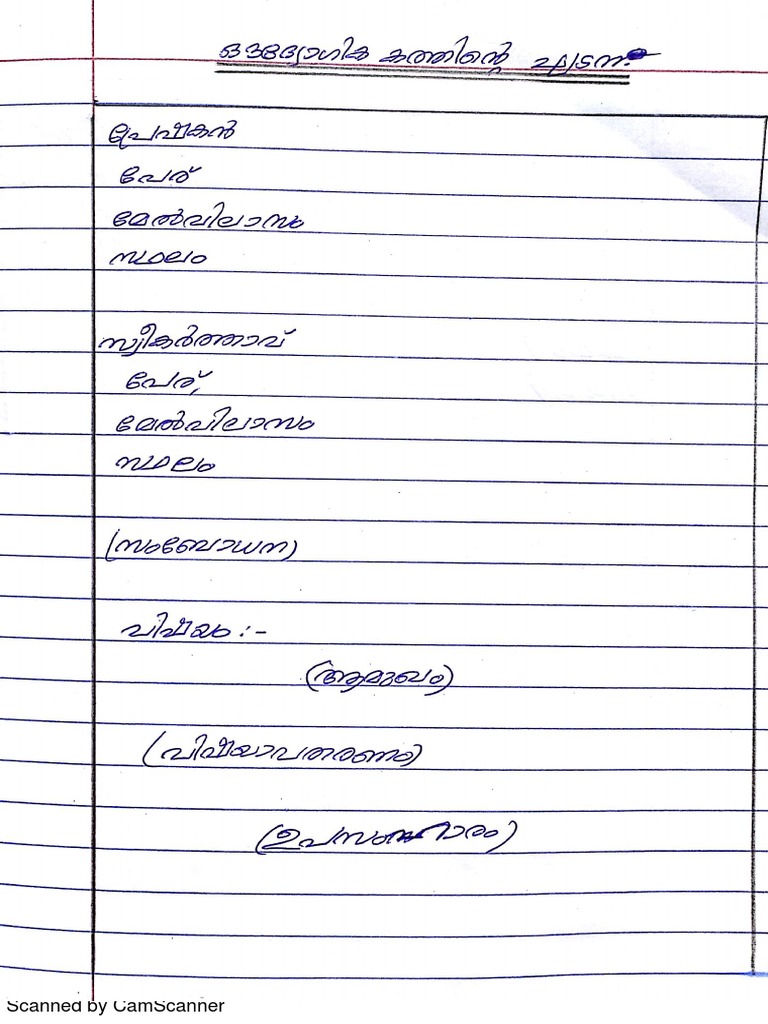 ഔദ്യോഗിക കത്തിന്റെ ഘടന
പ്രേഷകൻ
പേര്
മേൽവിലാസം
സ്ഥലം
സ്വീകർത്താവ്
പേര്
മേൽവിലാസം
സ്ഥലം
(സംബോധന)
വിഷയം :-
(ആമുഖം)
(വിഷയാവതരണം)
(ഉപസംഹാരം)
Scanned by CamScanner